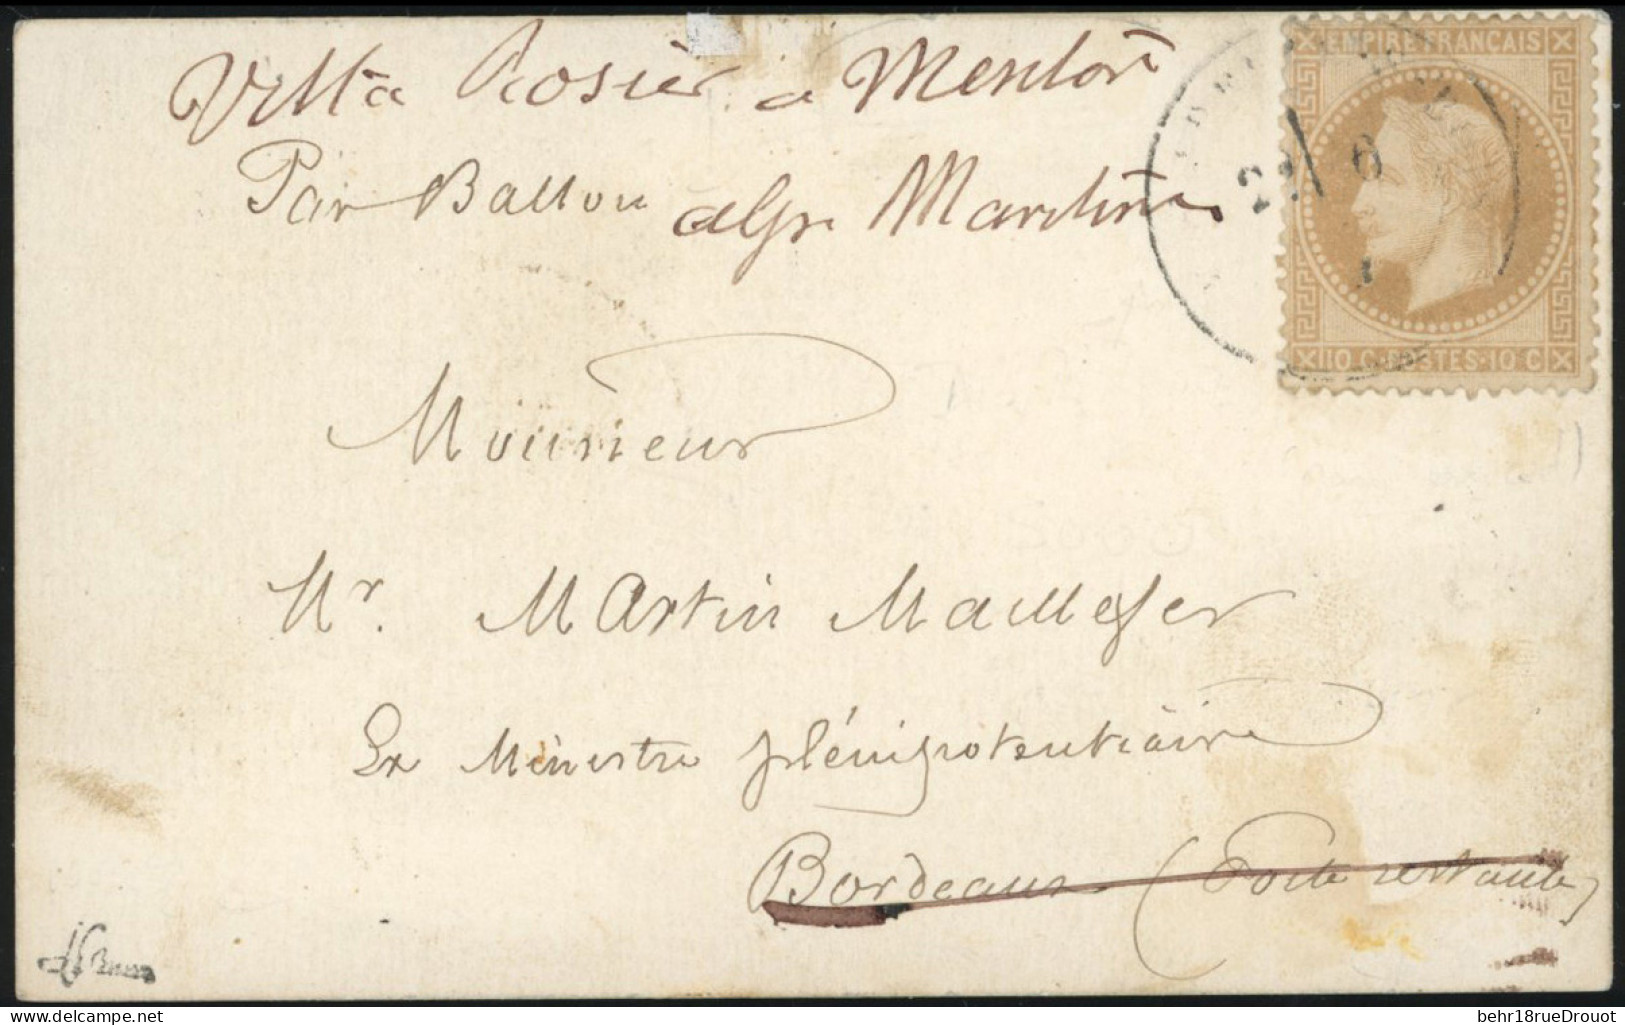 Villa Rosier a Menton
Par Ballon alpes Maritimes
EMPIRE FRANCAIS
6
10 C. POSTES 10 C
Monsieur
Mr. Martin Maillefer
Ex Ministre plénipotentiaire
Bordeaux (Poste restante)
behr18rueDrouot